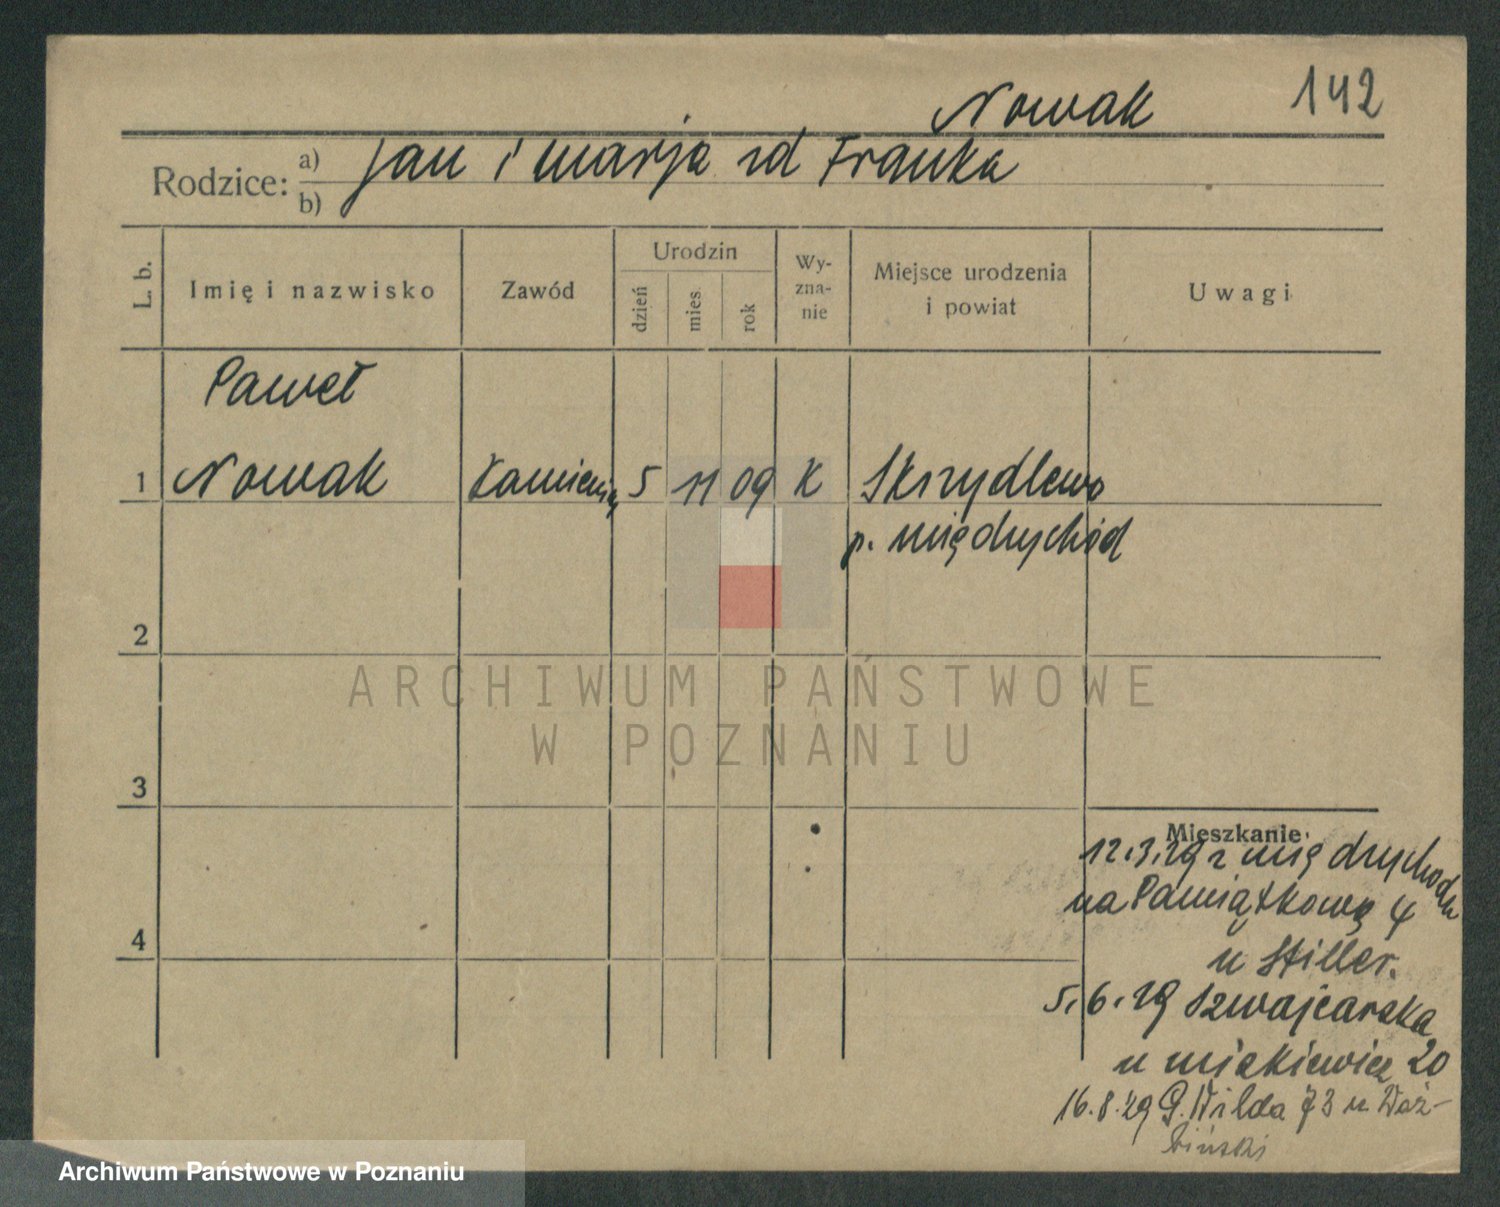 Nowak 142
Rodzice: a) Jan i Marja zd Franka
b)
L. b. Imię i nazwisko Zawód Urodzin dzień mies. rok Wy-zna-nie Miejsce urodzenia i powiat Uwagi
Paweł
1 Nowak 5 11 09 K Skrzydlewo
p. Międrychód
2
ARCHIWUM PAŃSTWOWE
W POZNANIU
3
Mieszkanie
12.3.29 z Międrychodu
na Pamiątkową 4
u Stiller.
4
5.6.29 Szwajcarska
u Mickiewicz 20
16.8.29 G. Wilda 73 u
Archiwum Państwowe w Poznaniu